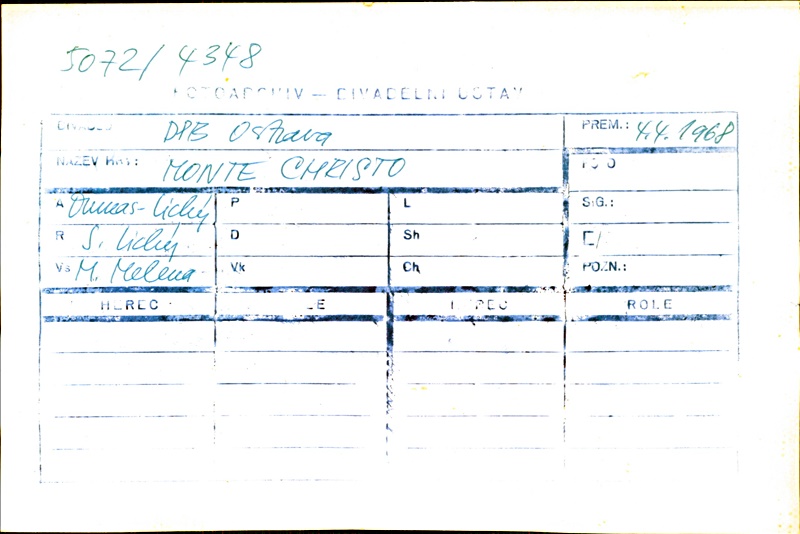 5072/4348
FOTOARCHIV — DIVADELNÍ ÚSTAV
DIVADLO DPB Ostrava PREM.: 4.4.1968
NÁZEV HRY: MONTE CHRISTO FOTO
A Dumas-Lichý P L SIG.:
R S. Lichý D Sh E/
Vs M. Melena Vk Ch POZN.:
HEREC ROLE HEREC ROLE